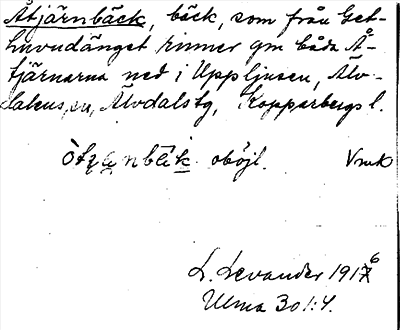 Åtjärnbäck, bäck, som från Get-
huvudänget rinner gm båda Å-
tjärnarna ned i Uppljusen, Älv-
dalens sn, Älvdals tg, Kopparbergs l.
òtząnbę̀k oböjl. Vmk
L. Levander 1916
Ulma 301:4.